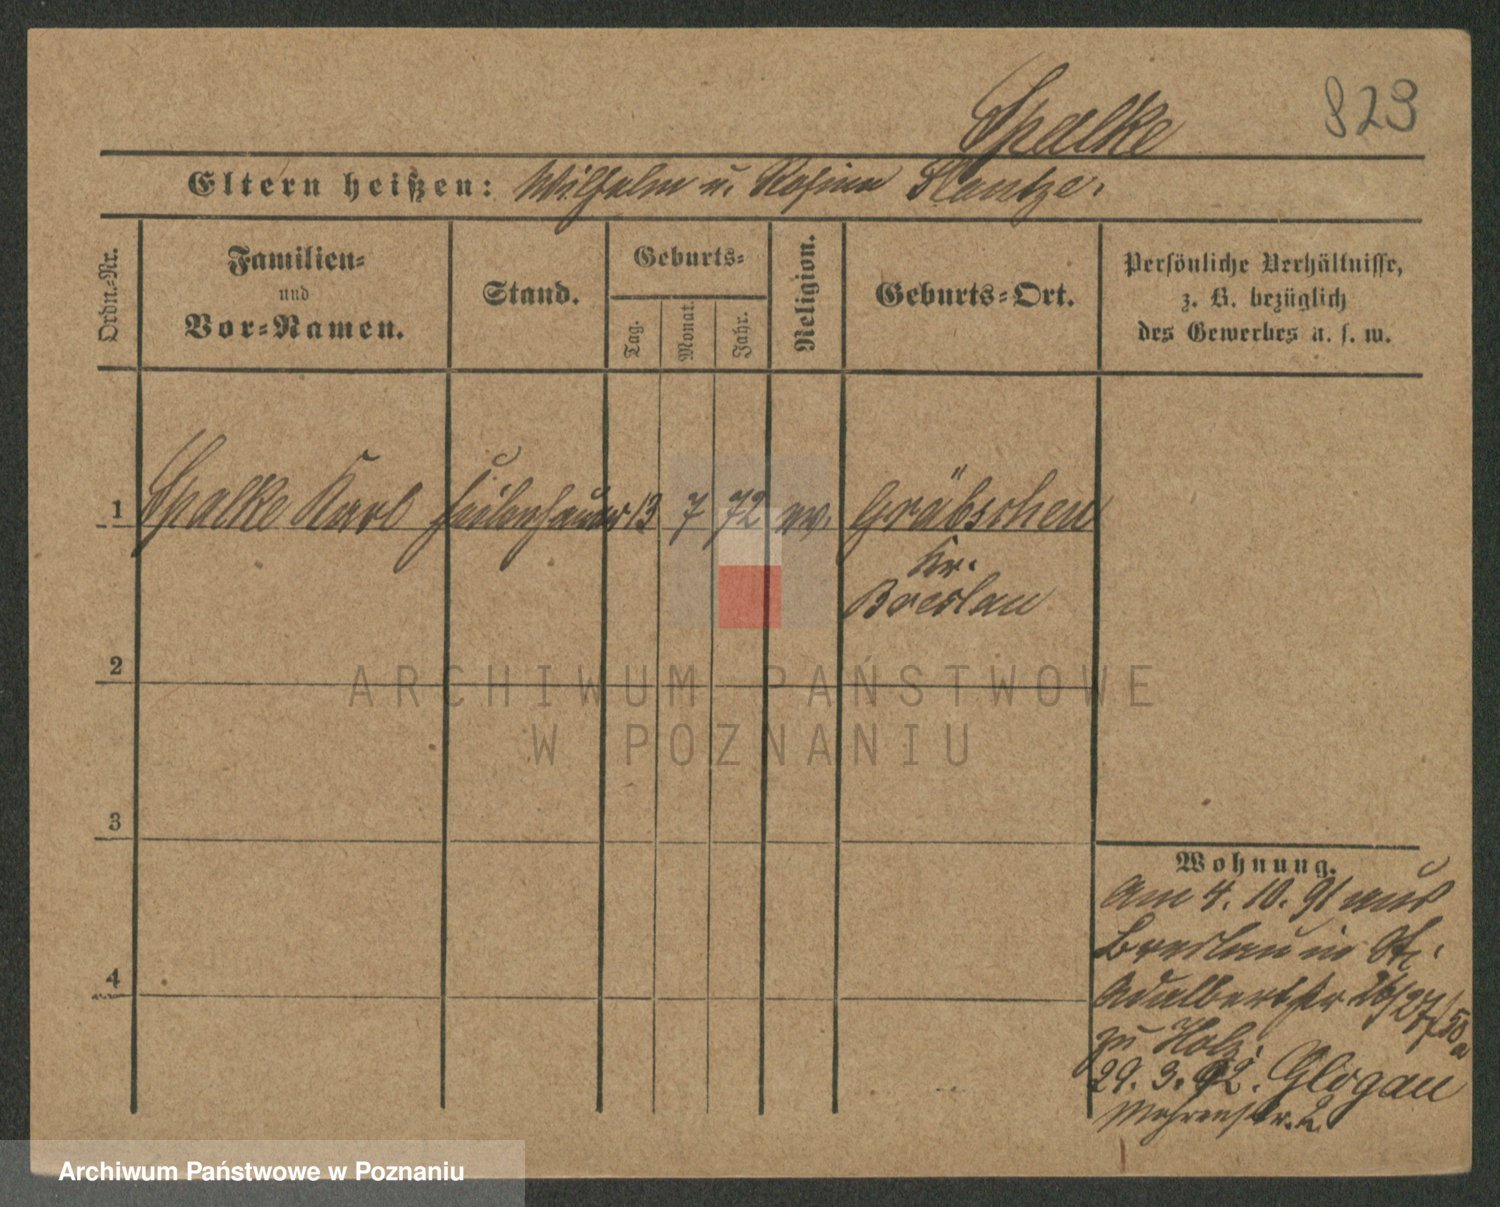 823
Spalke
Eltern heißen: Wilhelm u. Rosina Klantze.
Ordn.-Nr.
Familien-
und
Vor-Namen.
Stand.
Geburts-
Tag.
Monat.
Jahr.
Religion.
Geburts-Ort.
Persönliche Verhältnisse,
z. B. bezüglich
des Gewerbes u. s. w.
1 Spalke Karl Feilenhauer 13 7 72 ev. Gräbschen
Kr.
Breslau
2
3
4
Wohnung.
Am 4. 10. 91 aus
Breslau in St.
Adalbertstr 26/27
zu Holz.
29. 3. 92. Glogau
Mohrenstr. 2
ARCHIWUM PAŃSTWOWE
W POZNANIU
Archiwum Państwowe w Poznaniu